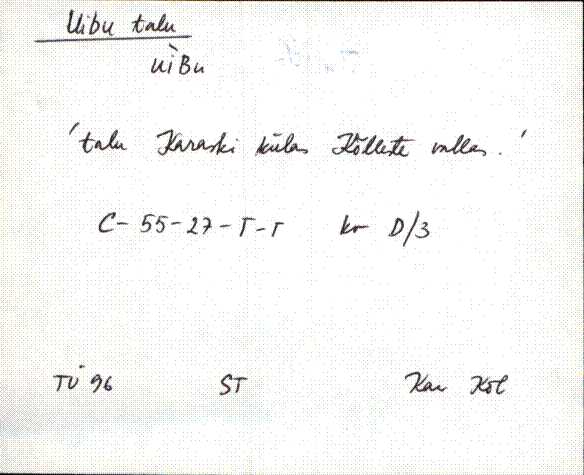 Uibu talu
uìBu
'talu Karaski külas Kõlleste vallas.'
C-55-27-T-T kr D/3
TÜ 96 ST Kar Kõl